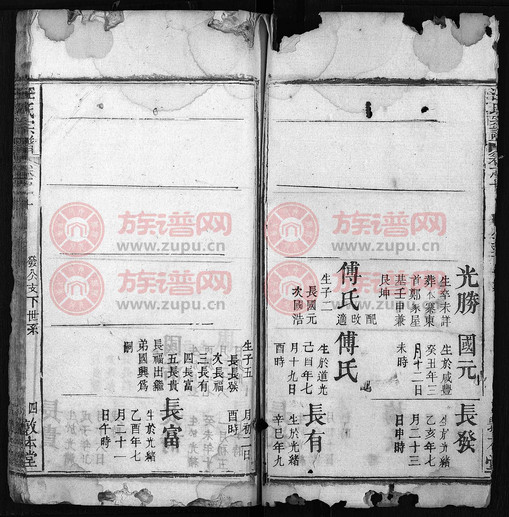 光勝
生卒未詳
首鄭家星
艮坤
配
傅氏
改適
生子二
長國元
次國浩
國元
生於咸豐
癸丑年三
月十二日
未時
傅氏
生於道光
己酉年七
月十九日
酉時
生子五
長長發
次長福
三長有
四長富
五長貴
長福出繼
弟國興為
嗣
長發
生於光緒
乙亥年七
月二十三
日申時
長有
生於光緒
辛巳年九
月初二日
酉時
長富
生於光緒
乙酉年七
月二十一
日午時
汪氏宗譜
發公支下世系
四
敦本堂
族谱网
www.zupu.cn
族谱网
www.zupu.cn
族谱网
www.zupu.cn
族谱网
www.zupu.cn